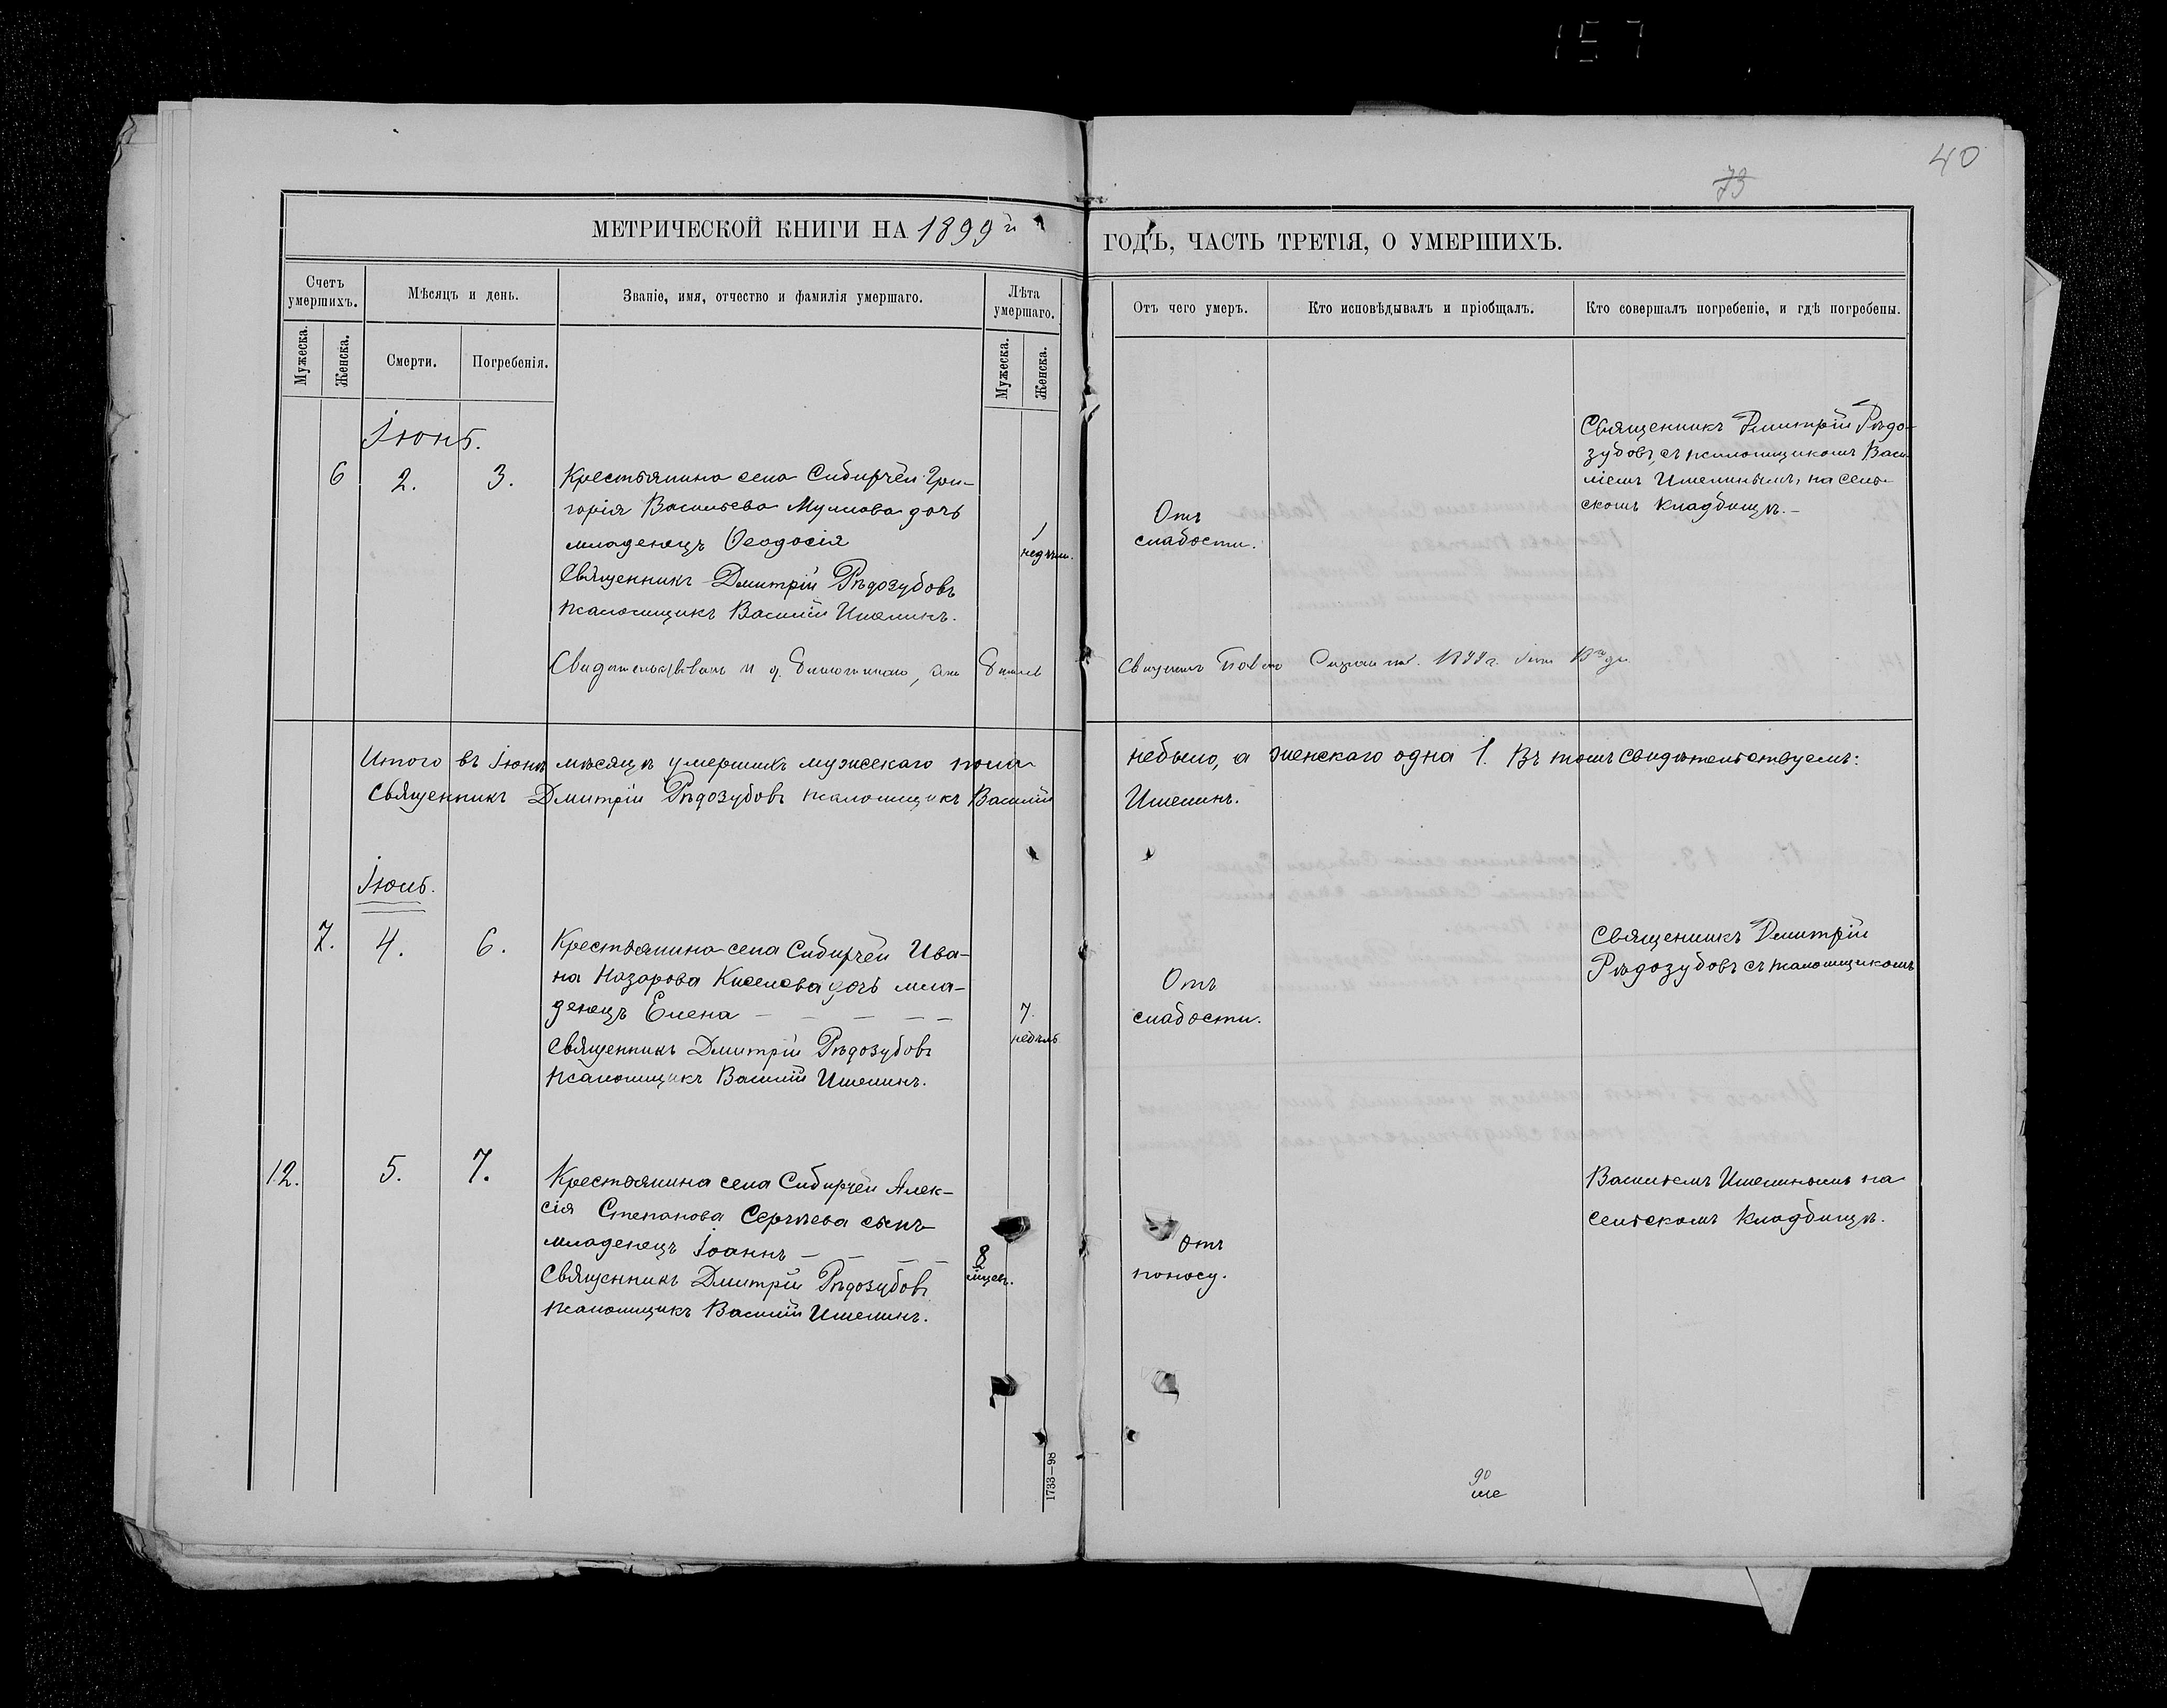 157
40
73
МЕТРИЧЕСКОЙ КНИГИ НА 1899й
ГОДЪ, ЧАСТЬ ТРЕТІЯ, О УМЕРШИХЪ.
Счетъ умершихъ.
Мѣсяцъ и день.
Званіе, имя, отчество и фамилія умершаго.
Лѣта умершаго.
Отъ чего умеръ.
Кто исповѣдывалъ и пріобщалъ.
Кто совершалъ погребеніе, и гдѣ погребены.
Мужеска.
Женска.
Смерти.
Погребенія.
Мужеска.
Женска.
Іюнь.
6
2.
3.
Крестьянина села Сибирчей Гри-
горія Васильева Мулюова дочь
младенецъ Ѳеодосія
Священникъ Дмитрій Рѣдозубовъ
Псаломщикъ Василій Ишелинъ.
1
недѣли.
Отъ
слабости.
Священникъ Дмитрій Рѣдо-
зубовъ, съ псаломщикомъ Васи
ліемъ Ишелинымъ, на сель-
скомъ кладбищѣ.-
1899г.
Итого въ Іюнѣ мѣсяцѣ умершихъ мужескаго пола
небыло, а женскаго одна 1. Въ томъ свидѣтельствуемъ:
Священникъ Дмитрій Рѣдозубовъ псаломщикъ Василій
Ишелинъ.
Іюль.
7.
4.
6.
Крестьянина села Сибирчей Ива-
на Назарова Киселева дочь мла-
денецъ Елена - - - - -
Священникъ Дмитрій Рѣдозубовъ
Псаломщикъ Василій Ишелинъ.
7.
недѣль
Отъ
слабости.
Священникъ Дмитрій
Рѣдозубовъ съ псаломщикомъ
12.
5.
7.
Крестьянина села Сибирчей Алек-
сія Степанова Сергѣева сынъ
младенецъ Іоаннъ - - - -
Священникъ Дмитрій Рѣдозубовъ
Псаломщикъ Василій Ишелинъ.
8
мѣсяц.
Отъ
поносу.
Васильемъ Ишелинымъ на
сельскомъ кладбищѣ.
1733-98
90